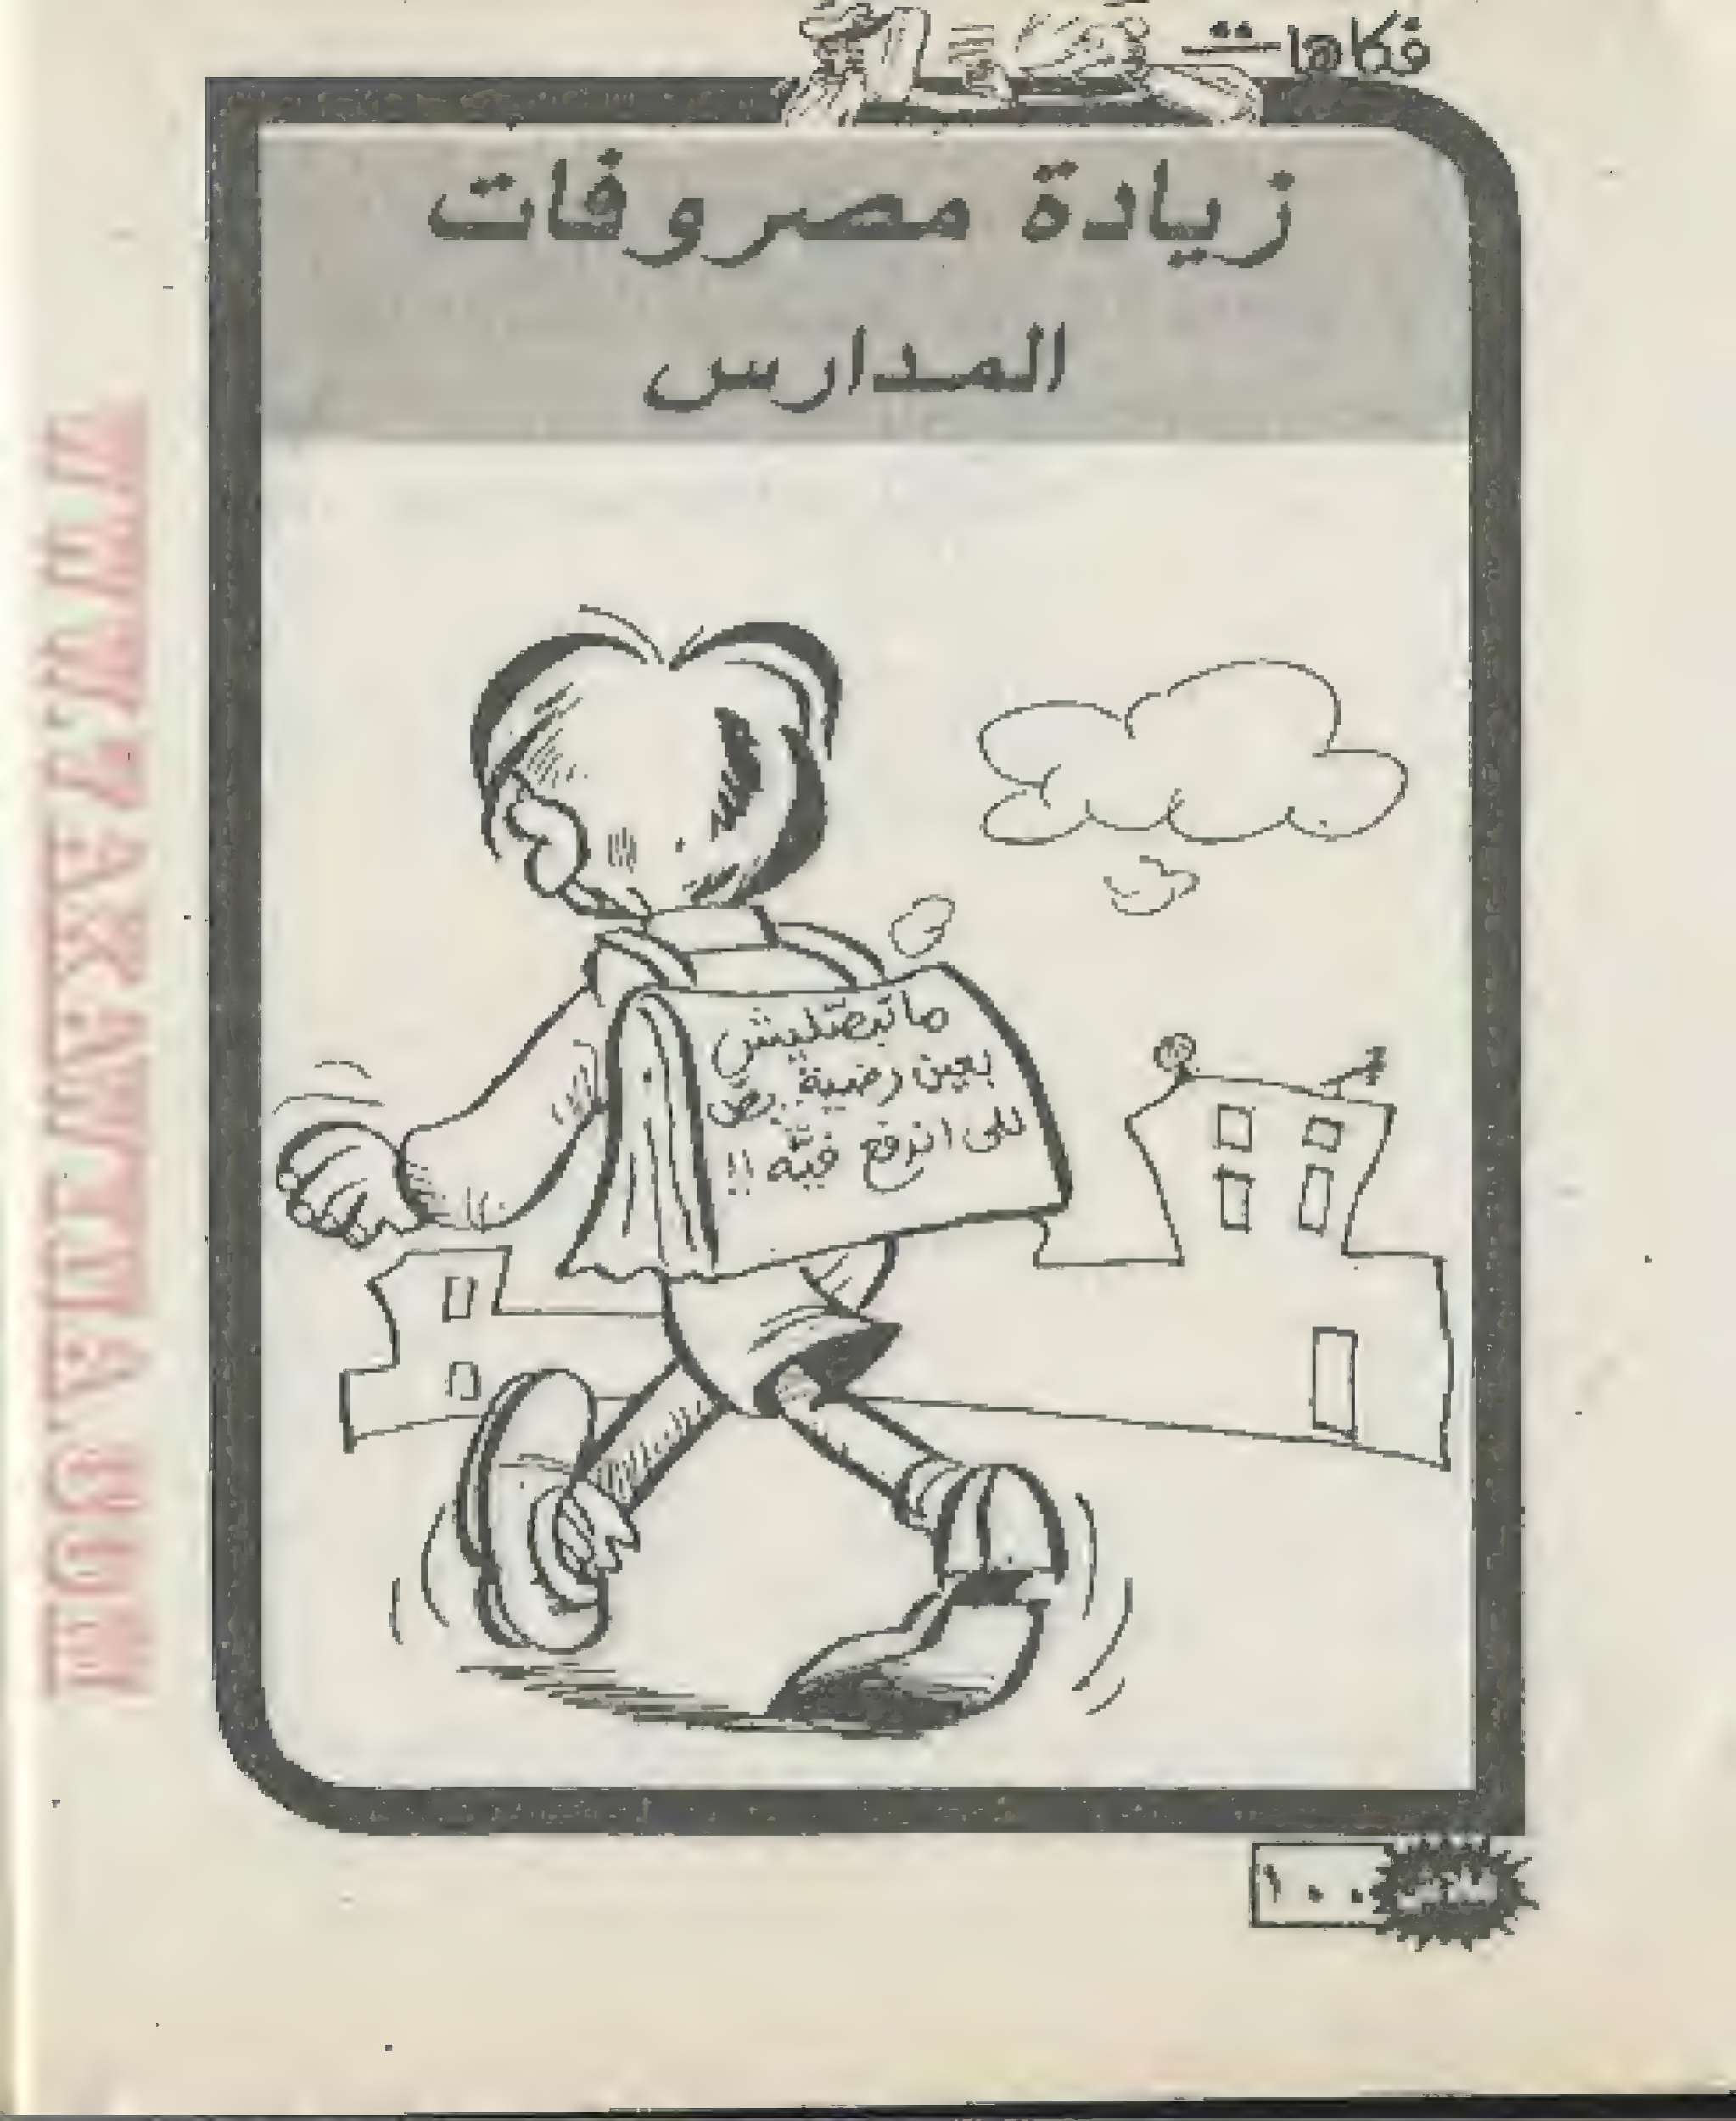 فكاهات
زيادة مصروفات
المدارس
ماتبصّليش
بعين رضية.. بص
للى اندفع فيّه !!
١٠٠